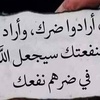 أرادوا ضرك، وأراد
منفعتك سيجعل اللَّه
في ضرهم نفعك